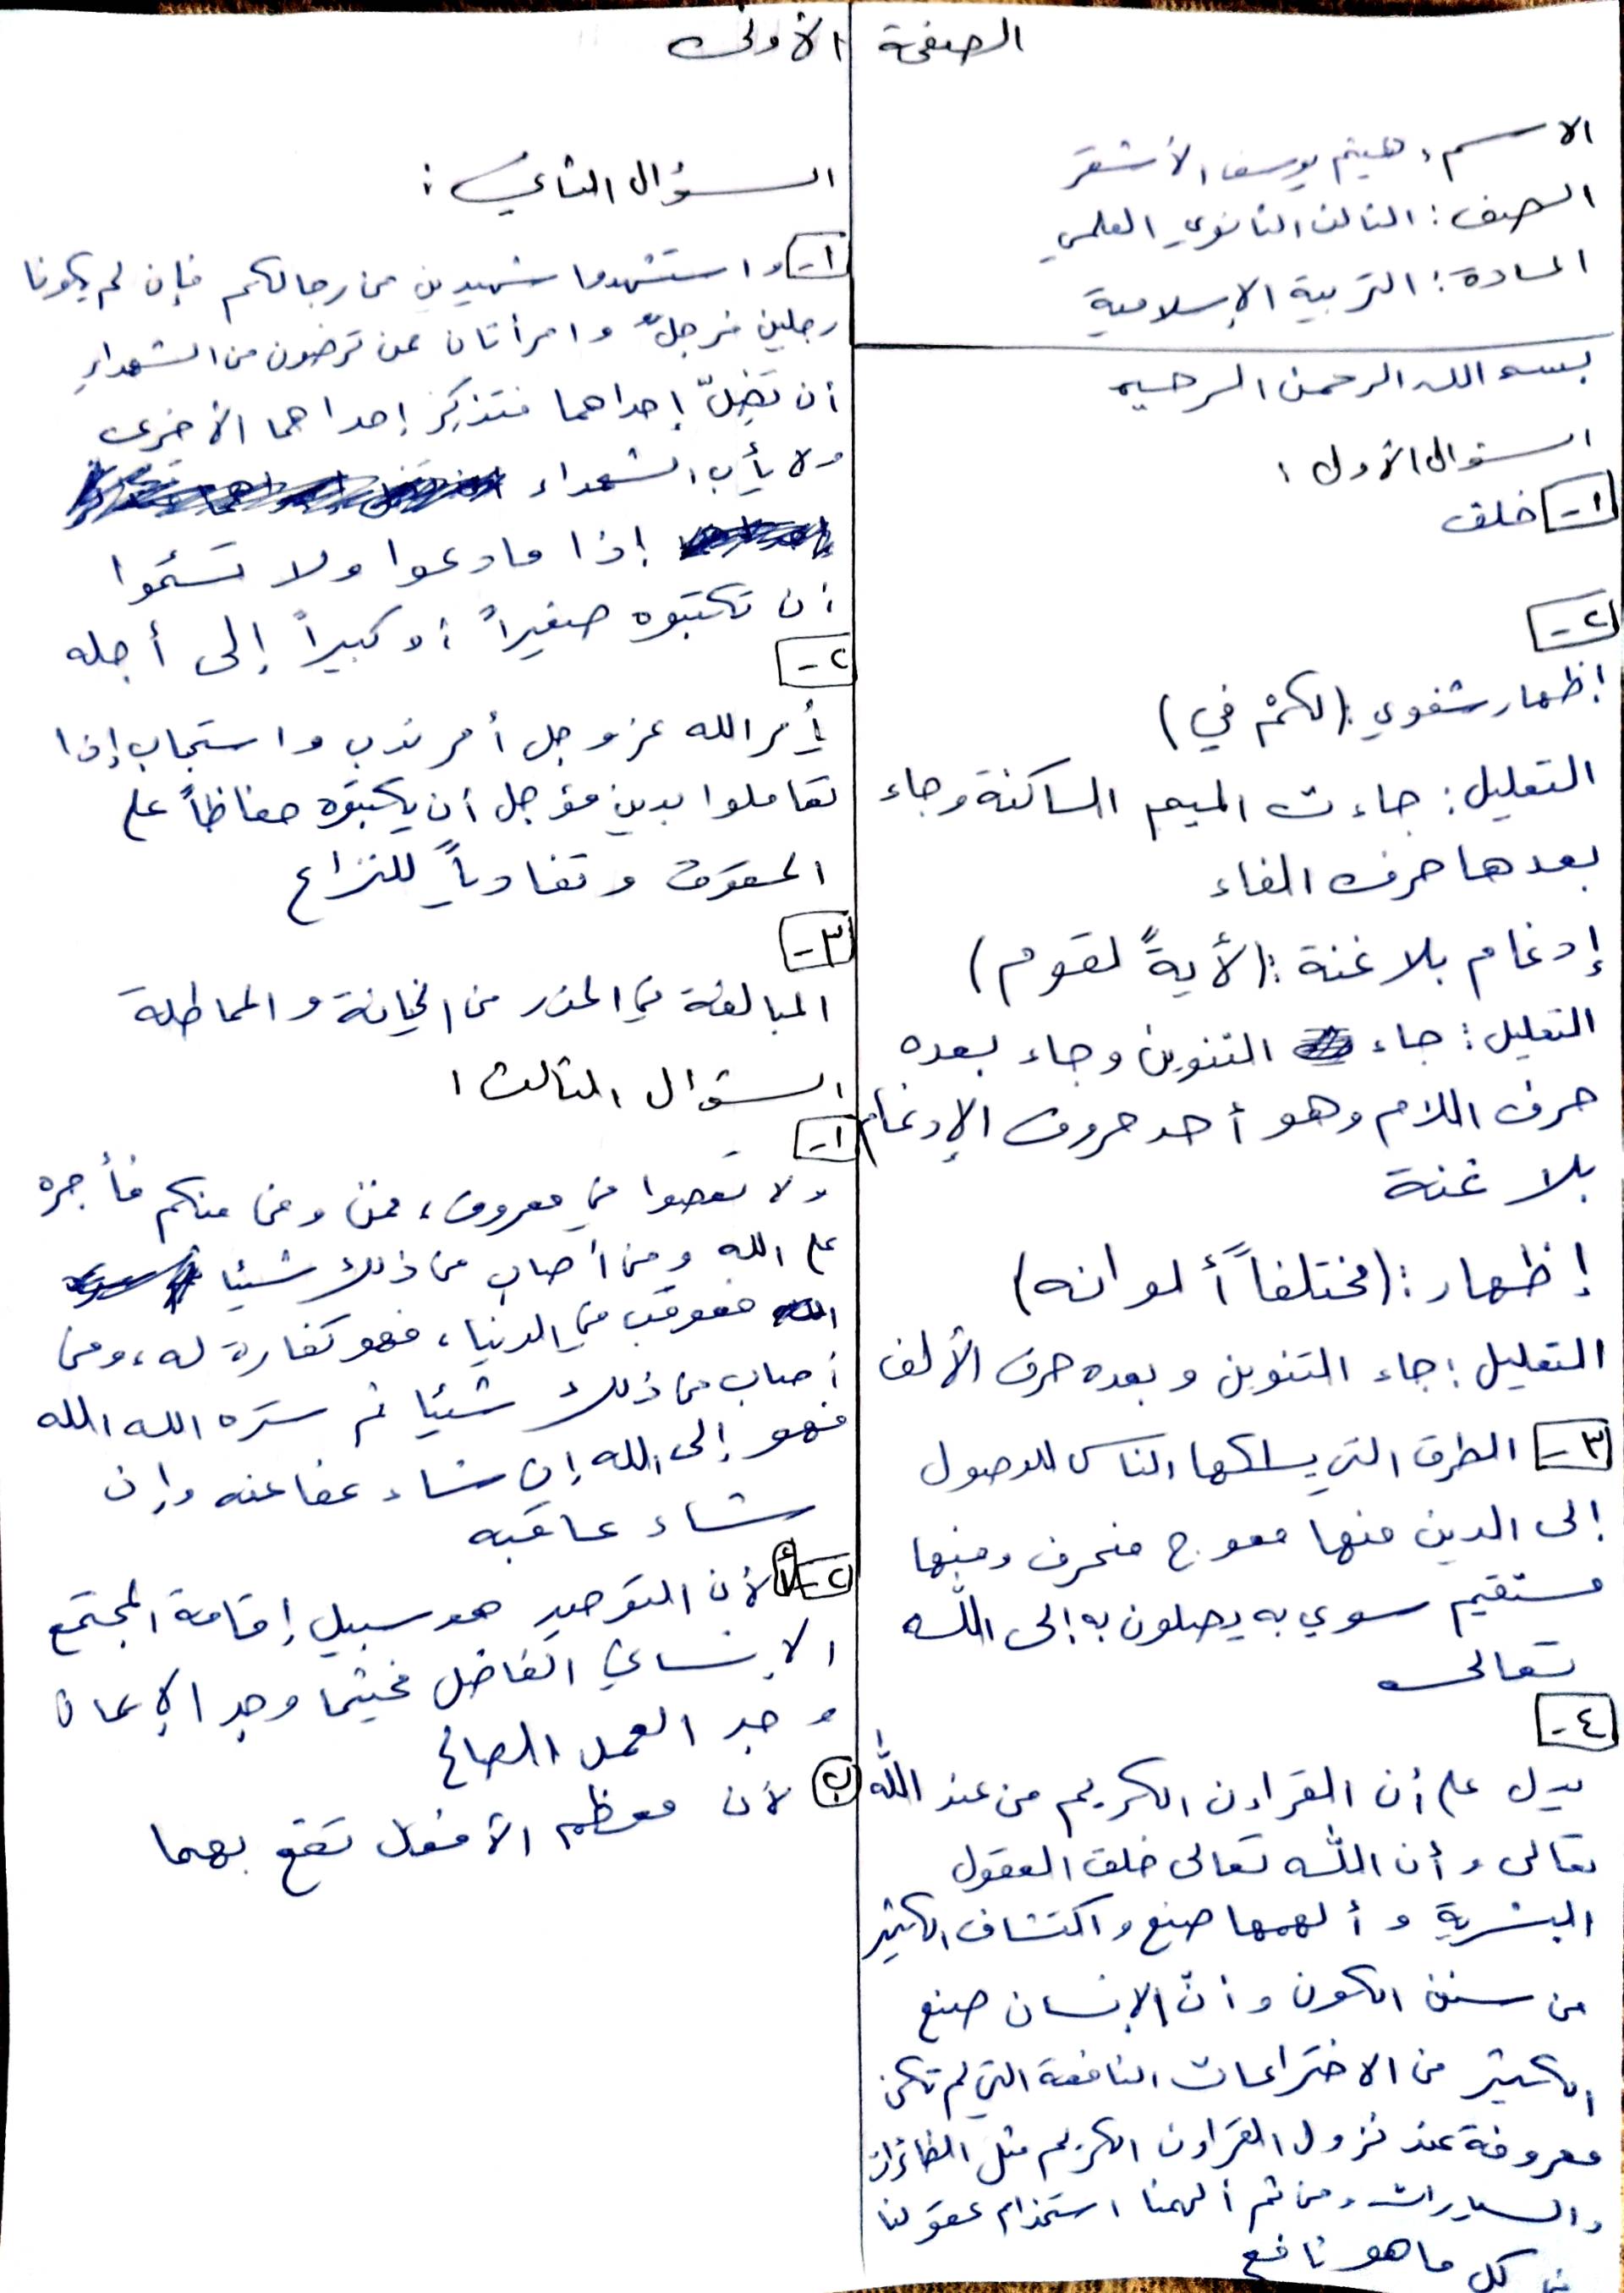 الصفحة الأولى
الاسم: هيثم يوسف الأشقر
الصف: الثالث الثانوي العلمي
المادة: التربية الإسلامية
بسم الله الرحمن الرحيم
السؤال الأول:
١- خلق
٢-
إظهار شفوي: (لكمْ في)
التعليل: جاءت الميم الساكنة وجاء
بعدها حرف الفاء
إدغام بلا غنة: (لأيةً لقوم)
التعليل: جاء التنوين وجاء بعده
حرف اللام وهو أحد حروف الإدغام
بلا غنة
إظهار: (مختلفاً ألوانه)
التعليل: جاء التنوين وبعده حرف الألف
٣- الطرق التي يسلكها الناس للوصول
إلى الدين منها معوج منحرف ومنها
مستقيم سوي به يصلون به إلى الله
تعالى
٤-
يدل على أن القراءن الكريم من عند الله
تعالى وأن الله تعالى خلق العقول
البشرية وألهمها صنع واكتشاف الكثير
من سنن الكون وأنّ الإنسان صنع
الكثير من الاختراعات النافعة التي لم تكن
معروفة عند نزول القراءن الكريم مثل الطائرات
والسيارات ومن ثم ألهمنا استخدام عقولنا
في كل ما هو نافع
السؤال الثاني:
١- واستشهدوا شهيدين من رجالكم فإن لم يكونا
رجلين فرجلٌ وامرأتان ممن ترضون من الشهداءِ
أن تضِلّ إحداهما فتذكِرَ إحداهما الأخرى
ولا يأب الشهداء
إذا مادعوا ولا تسئموا
أن تكتبوه صغيراً أو كبيراً إلى أجله
٢-
أمر الله عز وجل أمر ندب واستجاب إذا
تعاملوا بدين مؤجل أن يكتبوه حفاظاً على
الحقوق وتفادياً للنزاع
٣-
المبالغة في الحذر من الخيانة والمماطلة
السؤال الثالث:
١-
ولا تعصوا في معروف، فمن وفى منكم فأجره
على الله ومن أصاب من ذلك شيئا
فعوقب في الدنيا، فهو كفارة له، ومن
أصاب من ذلك شيئا ثم ستره الله الله
فهو إلى الله إن شاء عفا عنه وإن
شاء عاقبه
٢- أ لأن التوحيد هو سبيل إقامة المجتمع
الإنساني الفاضل فحيثما وجد الإيمان
وجد العمل الصالح
ب لأن معظم الأفعل تقع بهما